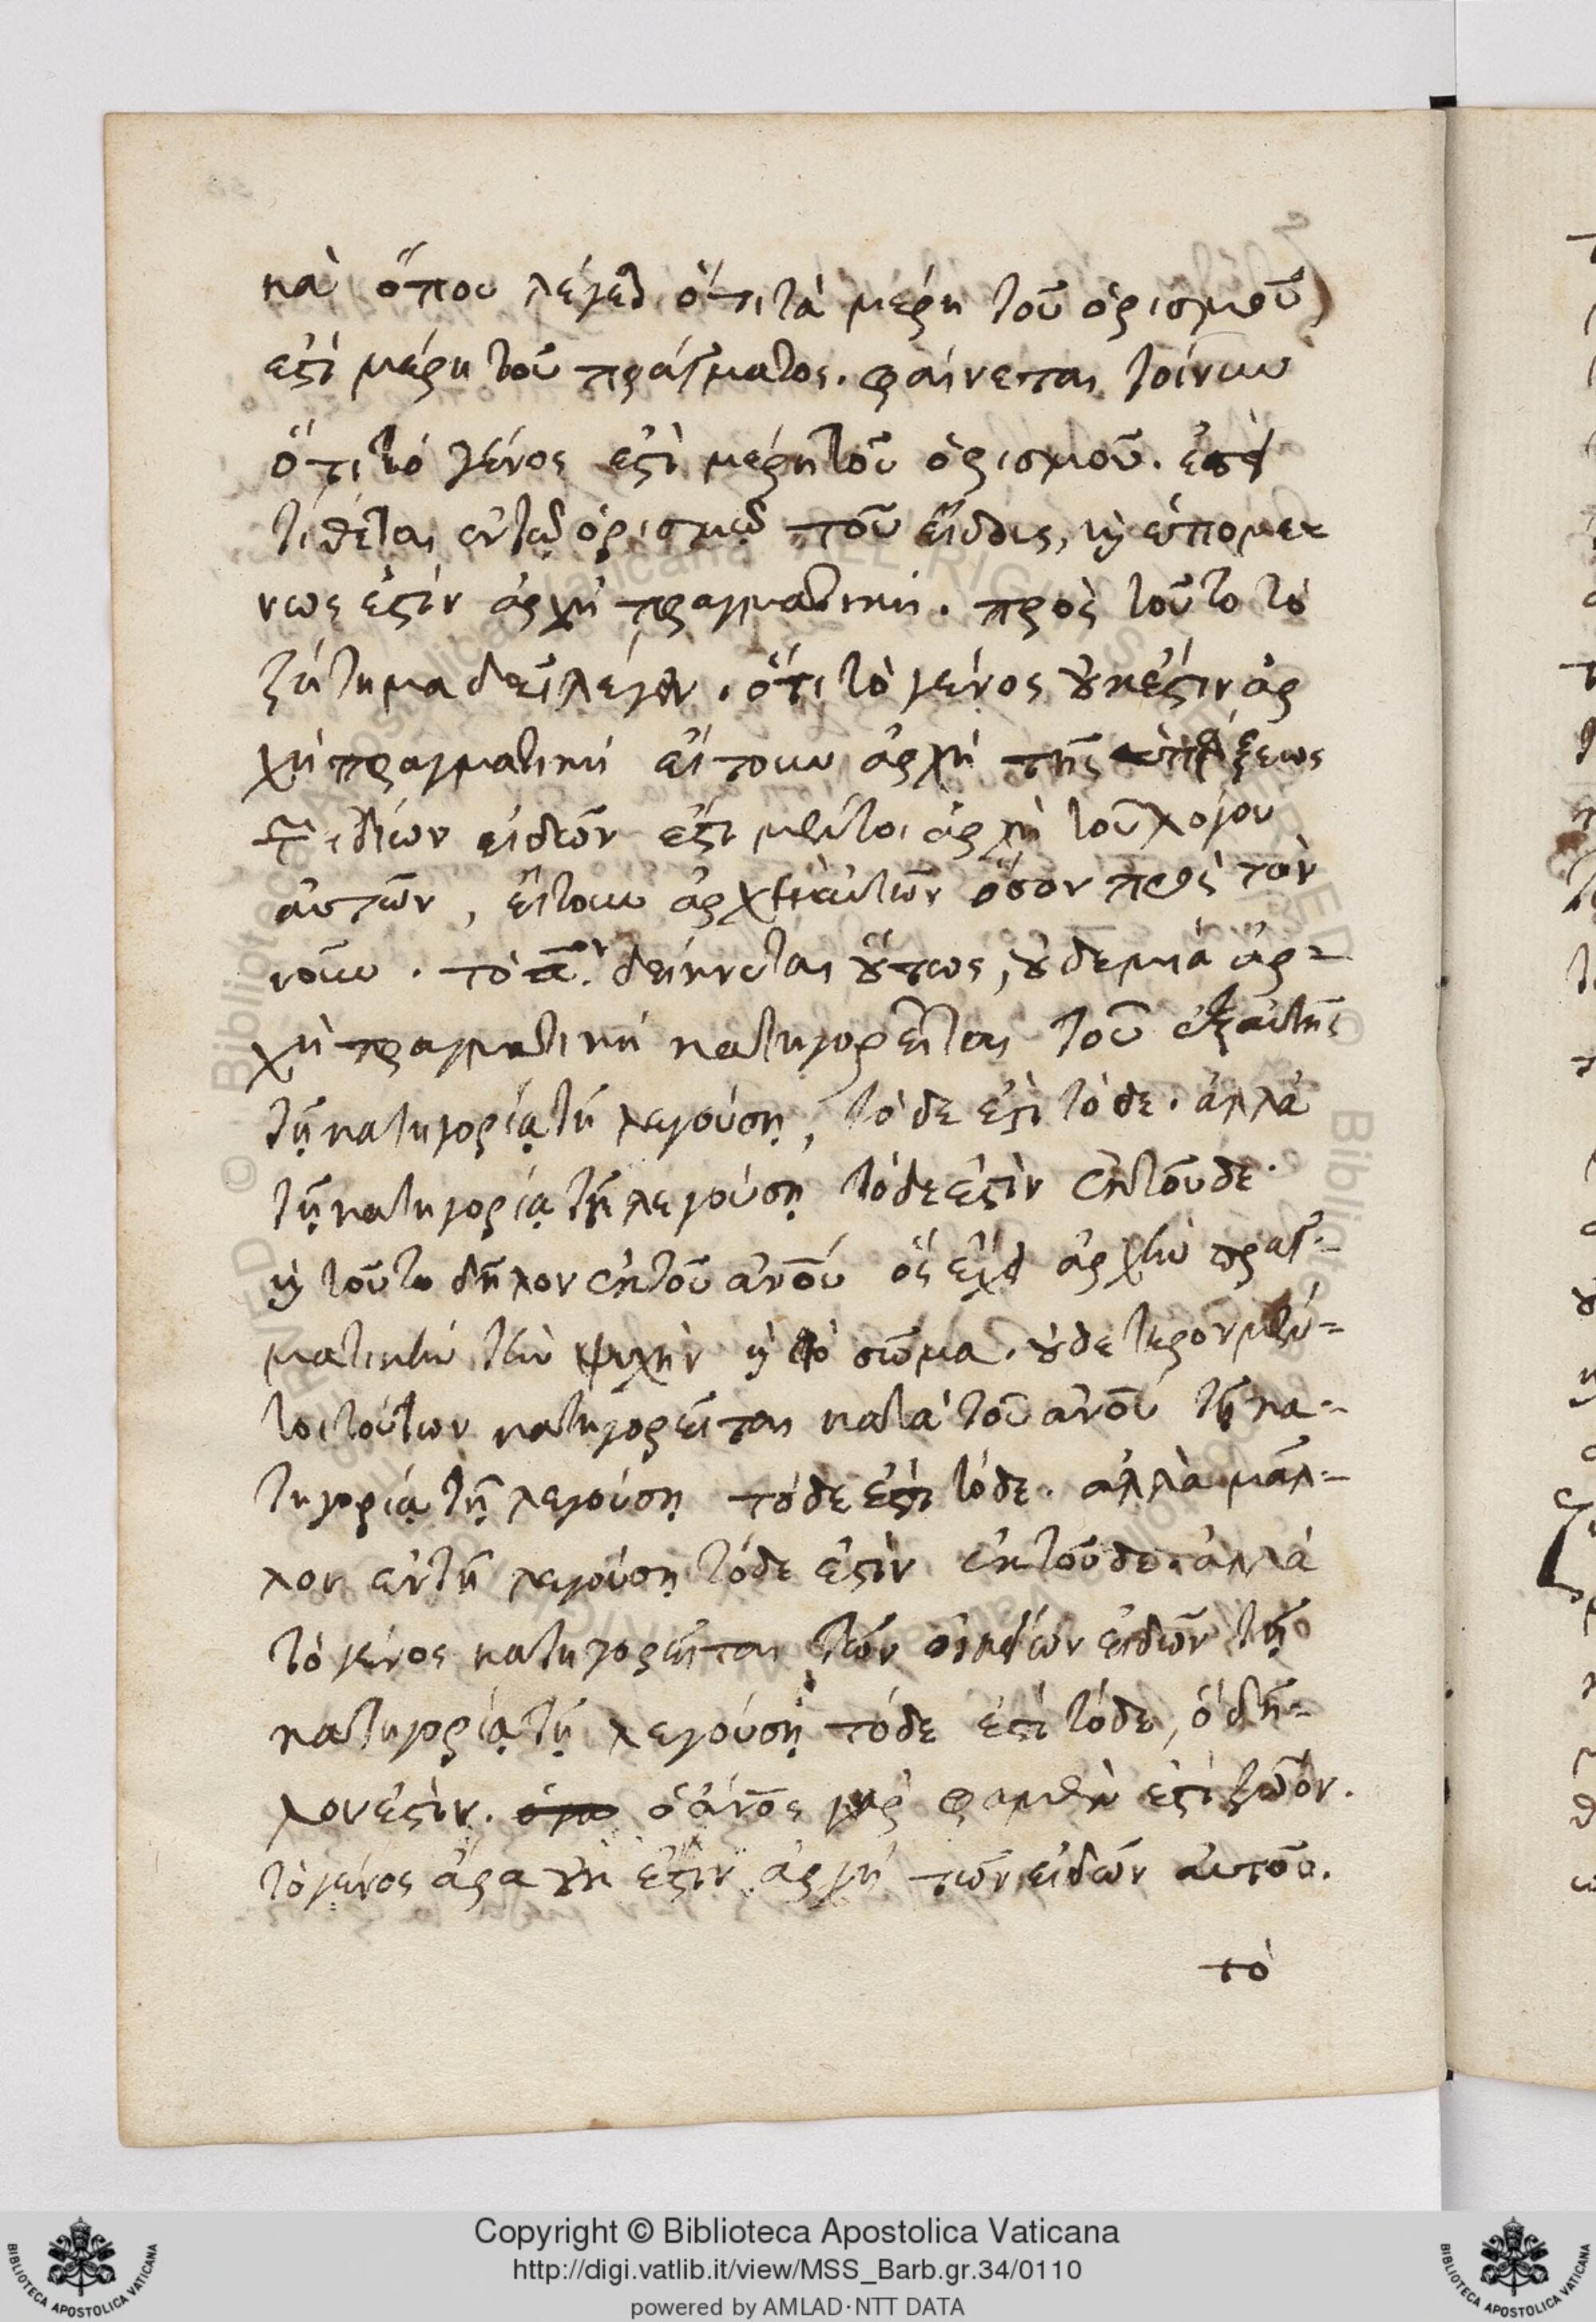 κὰ ὅπου λέγει ὅτι τὰ μέρη τοῦ ὁρισμοῦ
ἐστὶ μέρη τοῦ πράγματος. φαίνεται τοίνυν
ὅτι τὸ γένος ἐστὶ μέρη τοῦ ὁρισμοῦ.
τίθεται ἐν τῷ ὁρισμῷ τοῦ εἴδους, καὶ ἑπομέ-
νως ἐστὶν ἀρχὴ πραγματικὴ. πρὸς τοῦτο τὸ
ζήτημα δεῖ λέγειν. ὅτι τὸ γένος οὐκ ἔστιν ἀρ
χὴ πραγματικὴ εἴτουν ἀρχὴ τῆς ὑπάρξεως
τῶν ἰδίων εἰδῶν ἔστι μέντοι ἀρχὴ τοῦ λόγου
αὐτῶν, εἴτουν ἀρχὴ αὐτῶν ὅσον πρὸς τὸν
νοῦν. τὸ αον. δείκνυται οὕτως, οὐδεμιὰ ἀρ-
χὴ πραγματικὴ κατηγορεῖται τοῦ ἐξ αὐτῆς
τῇ κατηγορίᾳ τῇ λεγούσῃ, τόδε ἐστὶ τόδε. ἀλλὰ
τῇ κατηγορίᾳ τῇ λεγούσῃ τόδε ἐστὶν ἐκ τοῦδε.
καὶ τοῦτο δῆλον ἐκ τοῦ ανου ὃς ἔχει ἀρχὴν πραγ-
ματικὴν τὴν ψυχὴν καὶ τὸ σῶμα. οὐδέτερον μέν-
τοι τούτων κατηγορεῖται κατὰ τοῦ ανου τῇ κα-
τηγορίᾳ τῇ λεγούσῃ τόδε ἐστὶ τόδε. ἀλλὰ μᾶλ-
λον ἐν τῇ λεγούσῃ τόδε ἐστὶν ἐκ τοῦδε. ἀλλὰ
τὸ γένος κατηγορεῖται τῶν οἰκείων εἰδῶν τῇ
κατηγορίᾳ τῇ λεγούσῃ τόδε ἐστὶ τόδε, ὃ δῆ-
λον ἐστὶν. ὁ ανος γὰρ φαμὲν ἐστὶ ζῶον.
τὸ γένος ἄρα οὐκ ἔστιν ἀρχὴ τῶν εἰδῶν αὐτοῦ.
τὸ
Copyright © Biblioteca Apostolica Vaticana
http://digi.vatlib.it/view/MSS_Barb.gr.34/0110
powered by AMLAD·NTT DATA